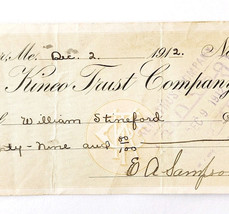 Me. Dec. 2 1912.
Kineo Trust Company
William Stineford
Nine and 00/100
E A Sampso